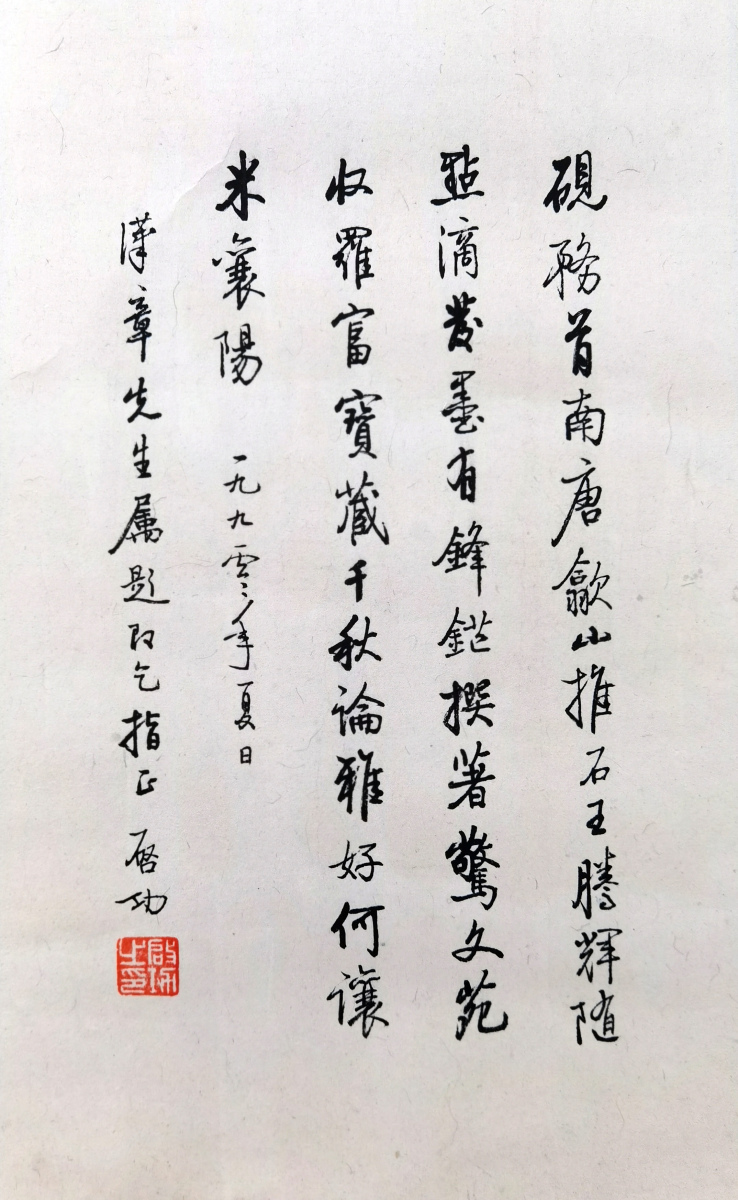 硯務首南唐歙山推石王騰輝随
點滴發墨有鋒鋩撰著驚文苑
收羅富寶藏千秋論雅好何讓
米襄陽 一九九零年夏日
漢章先生属題即乞指正 啓功
啟功之印